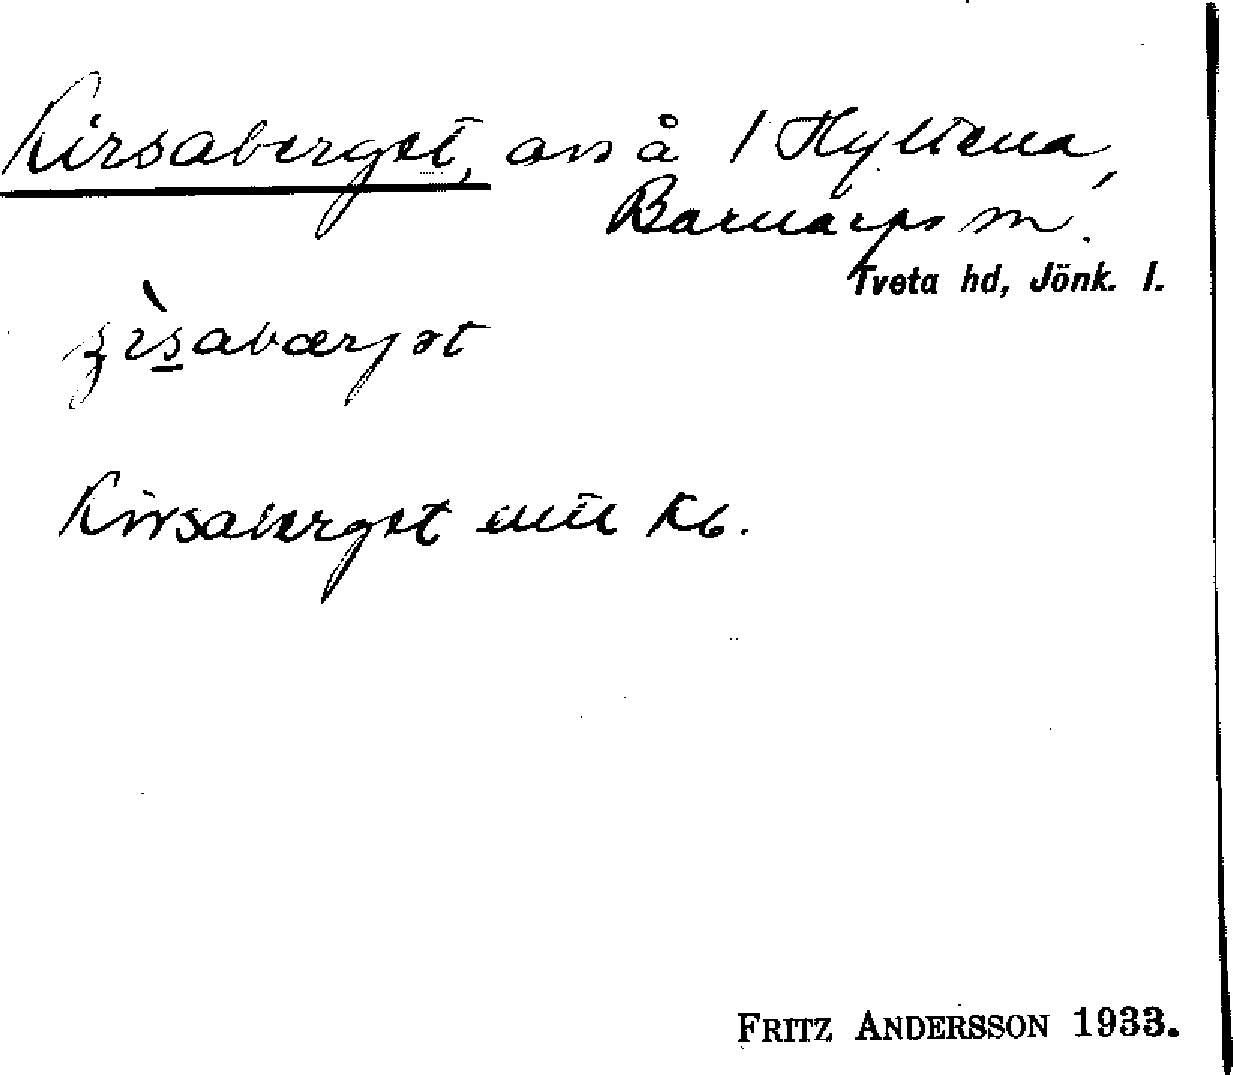 Kirsaberget, avs å 1 Hyltena,
Barnarps sn.
Tveta hd, Jönk. l.
Kirsaberget enl Kb.
FRITZ ANDERSSON 1933.